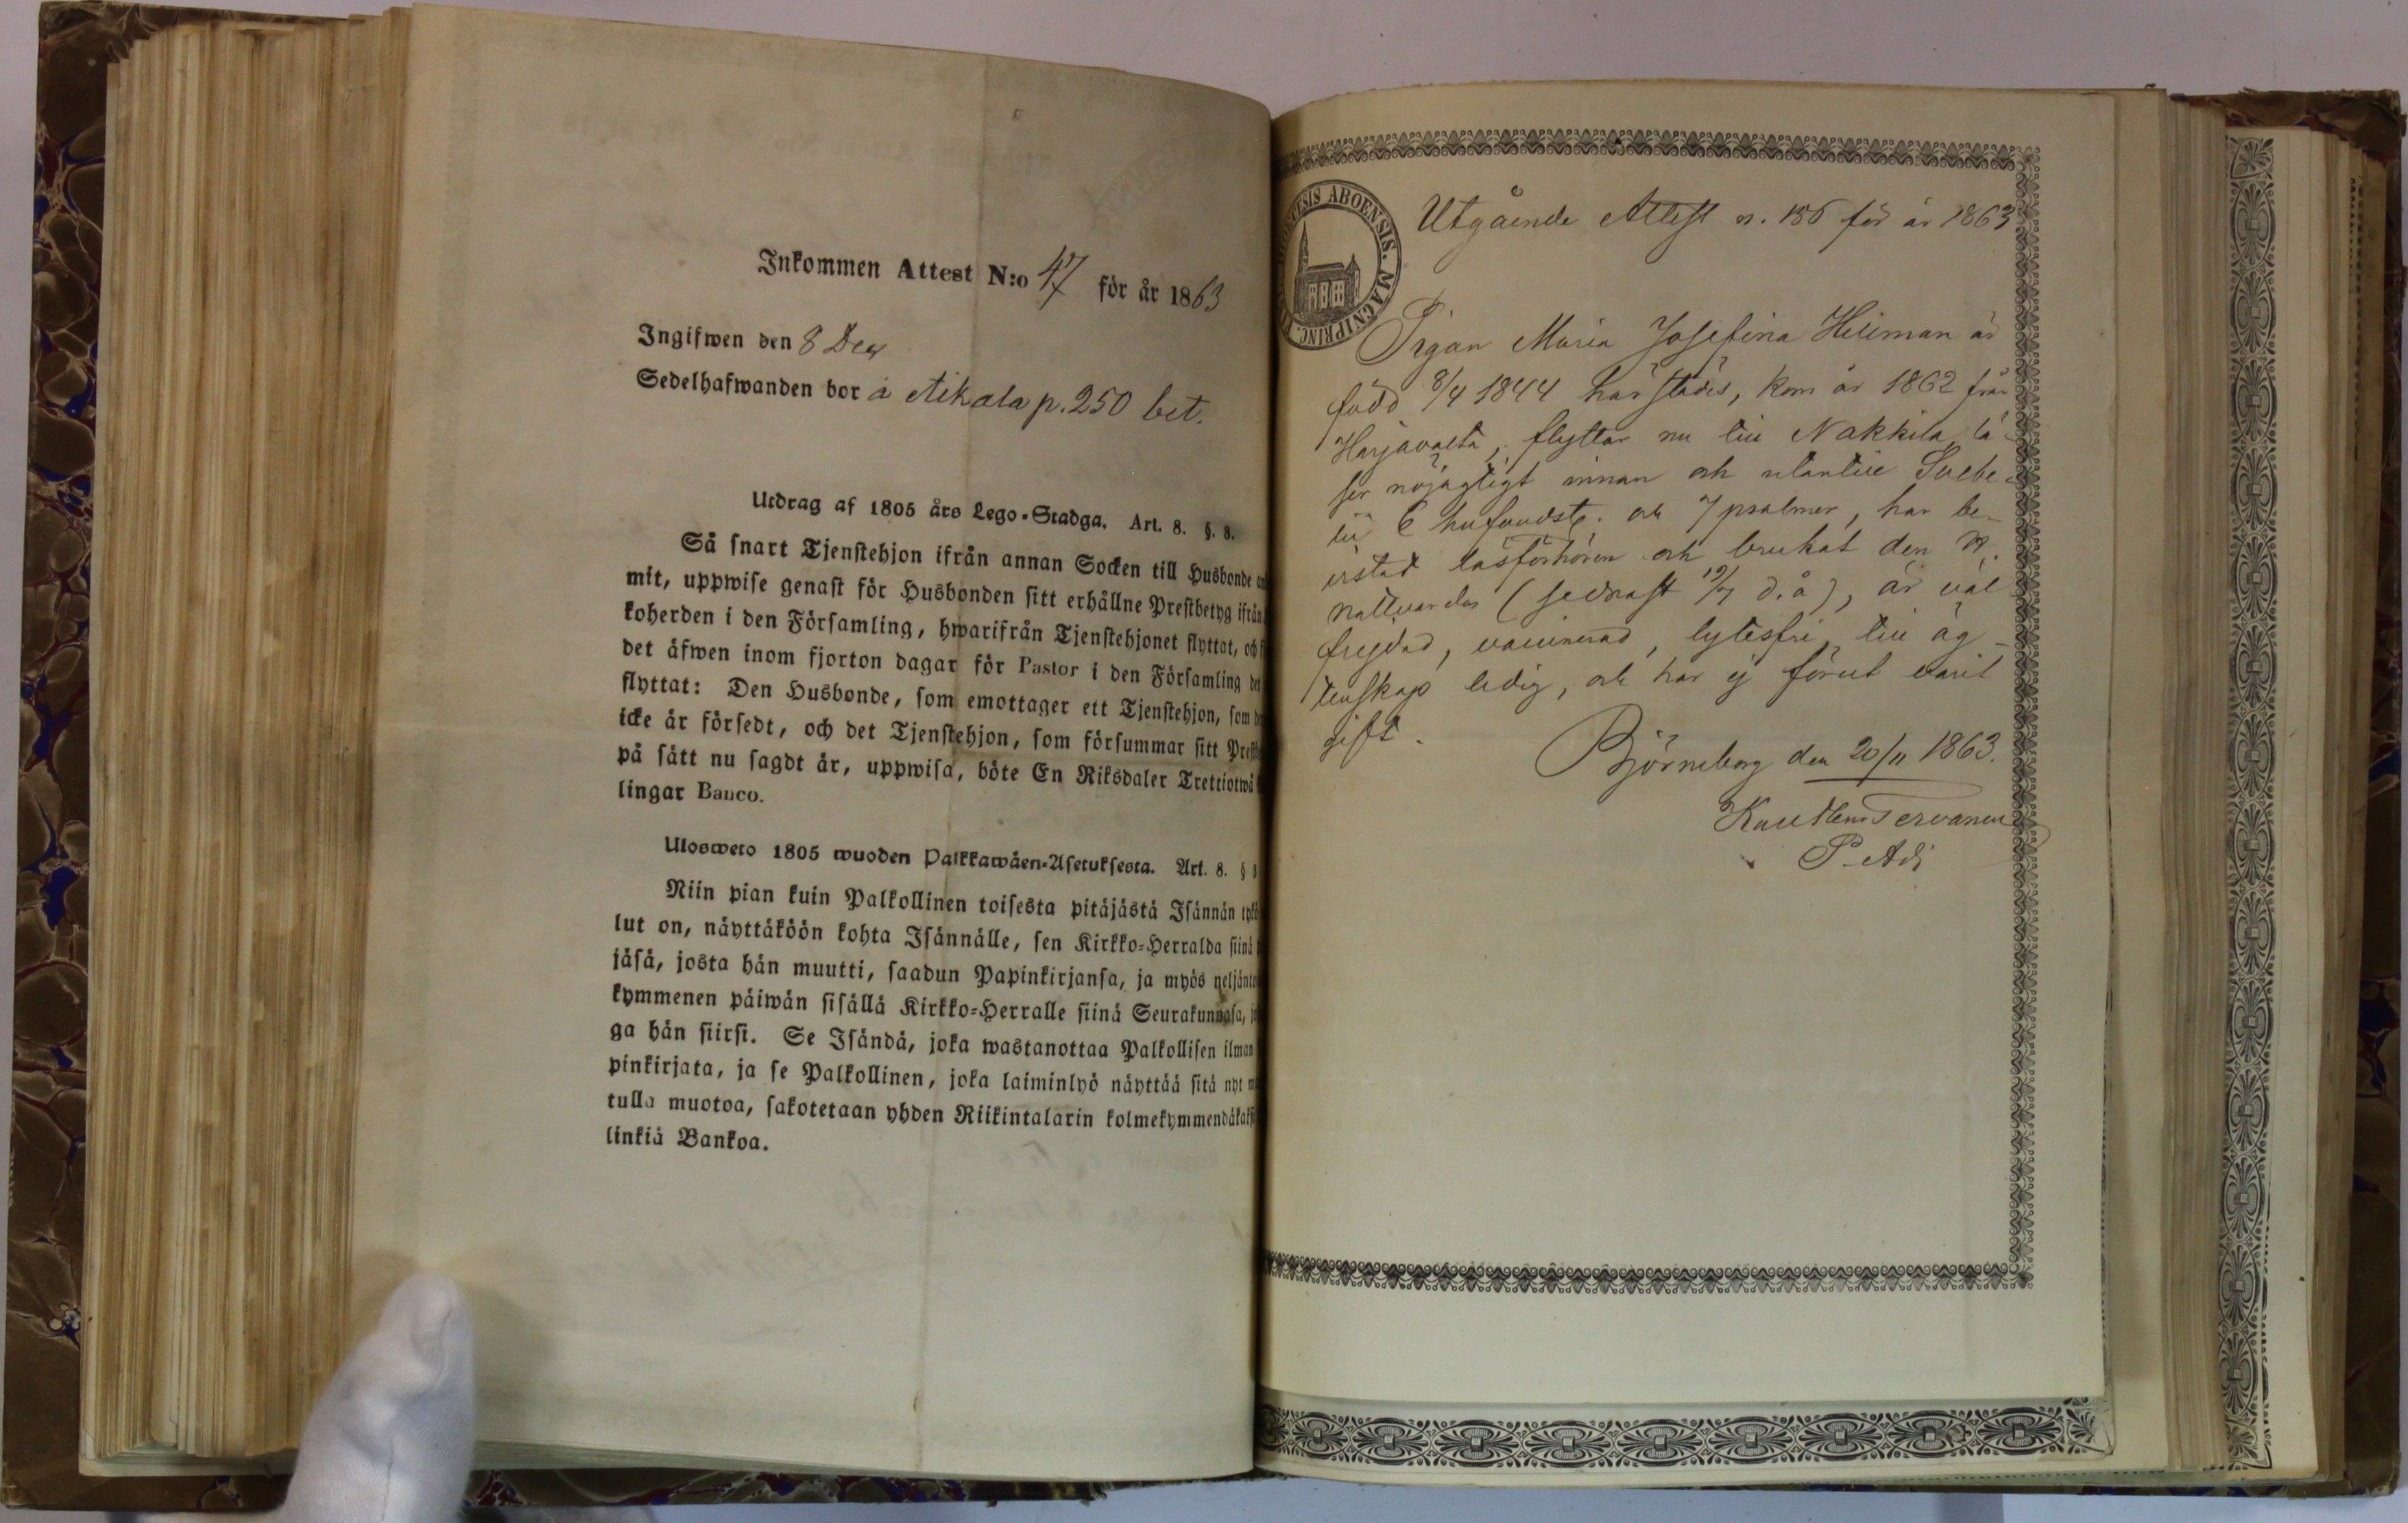 Inkommen Attest N:o 47 för år 1863
Ingifwen den 8 Dec
Sedelhafwanden bor å Aikala p. 250 bet.
Utdrag af 1805 års Lego-Stadga. Art. 8. §. 8.
Så snart Tjenstehjon ifrån annan Socken till Husbonde
mit, uppwise genast för Husbonden sitt erhållne Prestbetyg ifrån
koherden i den Församling, hwarifrån Tjenstehjonet flyttat, och
det äfwen inom fjorton dagar för Pastor i den Församling det
flyttat: Den Husbonde, som emottager ett Tjenstehjon, som
icke är försedt, och det Tjenstehjon, som försummar sitt
på sätt nu sagdt är, uppwisa, böte En Riksdaler Trettiotwå
lingar Banco.
Ulosweto 1805 wuoden Palkkawäen-Asetuksesta. Art. 8. §
Niin pian kuin Palkollinen toisesta pitäjästä Isännän
lut on, näyttäköön kohta Isännälle, sen Kirkko-Herralda siinä
jäsä, josta hän muutti, saadun Papinkirjansa, ja myös
kymmenen päiwän sisällä Kirkko-Herralle siinä Seurakunnasa,
ga hän siirsi. Se Isändä, joka wastanottaa Palkollisen ilman
pinkirjata, ja se Palkollinen, joka laiminlyö näyttää sitä nyt
tulla muotoa, sakotetaan yhden Riikintalarin
linkiä Bankoa.
DIOECESIS ABOENSIS. MAGNI PRINC.
Utgående Attest n. 186 för år 1863
Pigan Maria Josefina Heliman är
född 8/4 1844 härstädes, kom år 1862 från
Harjavalta, flyttar nu till Nakkila, lä-
ser nöjagtigt innan och utantill Svebe-
lii 6 hufvudst. och 7 psalmer, har be-
vistat läsförhören och brukat den H.
nattvarden (sednast 19/7 d.å), är väl
frejdad, vaccinerad, lytesfri, till äg-
tenskap ledig, och har ej förut varit
gift.
Björneborg den 20/11 1863.
Tervanen
P. Adj